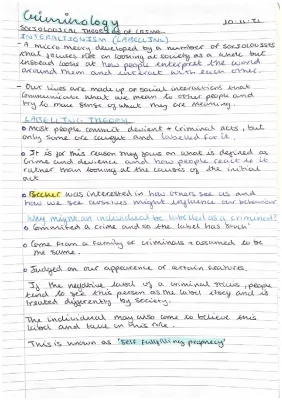 Criminology
10.11.21
SOCIOLOGICAL THEORIES OF CRIME
INTERACTIONISM (LABELLING)
- A micro theory developed by a number of sociologists
that focuses not on looking at society as a whole but
instead looks at how people interpret the world
around them and interact with each other.
- Our lives are made up of social interactions that
communicate what we mean to other people and
try to make sense of what they are meaning.
LABELLING THEORY
o Most people commit deviant + criminal acts, but
only some are caught and labelled for it.
o It is for this reason they focus on what is defined as
crime and deviance and how people react to it
rather than looking at the causes of the initial
act
o Becker was interested in how others see us and
how we see ourselves might influence our behaviour
Why might an individual be labelled as a criminal?
o Committed a crime and so the label has stuck
o Come from a family of criminals + assumed to be
the same.
o Judged on our appearance or certain features.
If the negative label of a criminal sticks, people
tend to see this person as the label says and is
treated differently by society.
The individual may also come to believe this
label and take on this role.
This is known as 'self fulfilling prophecy'